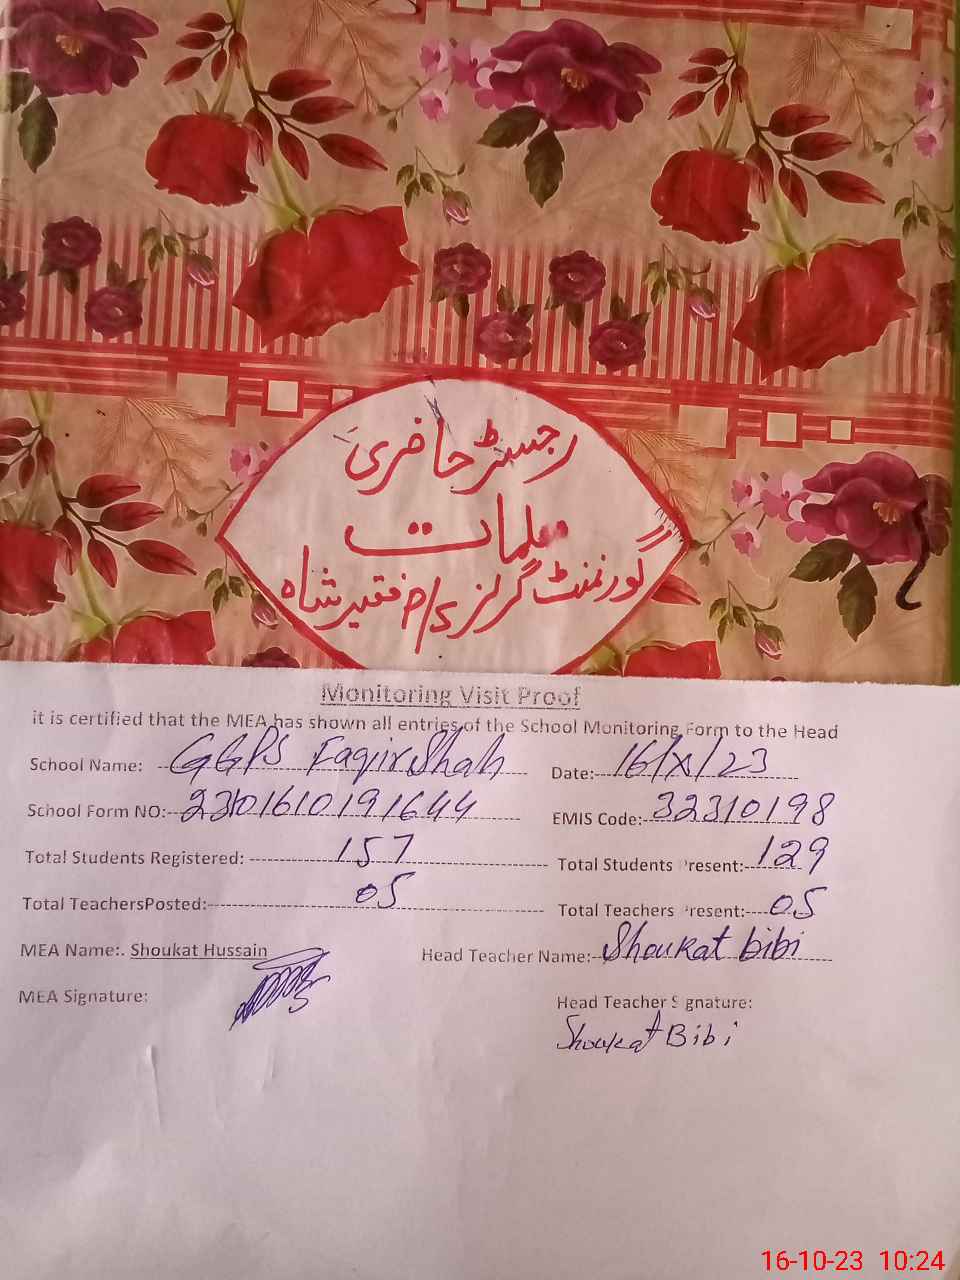 رجسٹر حاضری
معلمات
گورنمنٹ گرلز پ/م فقیر شاہ
Monitoring Visit Proof
it is certified that the MEA has shown all entries of the School Monitoring Form to the Head
School Name: GGPS Faqir Shah Date: 16/X/23
School Form NO: 23101610191644 EMIS Code: 32310198
Total Students Registered: 157 Total Students Present: 129
Total TeachersPosted: 05 Total Teachers Present: 05
MEA Name:. Shoukat Hussain Head Teacher Name: Shoukat bibi
MEA Signature: Head Teacher Signature:
Shoukat Bibi
16-10-23 10:24